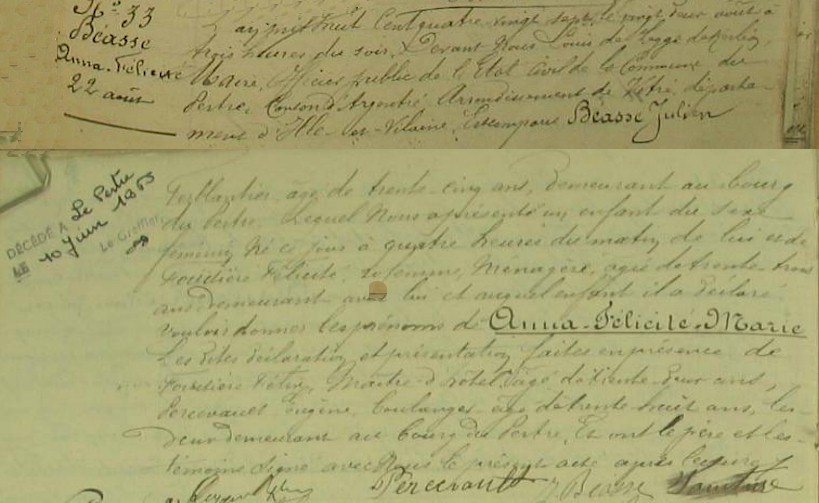 N° 33
Béasse
Anna-Félicité
22 août
L'an mil huit cent quatre-vingt sept, le vingt deux août à
trois heures du soir, Devant Nous Louis de
Maire, Officier public de l'Etat Civil de la Commune du
Pertre, Canton d'Argentré, Arrondissement de Vitré, départe-
ment d'Ille-et-Vilaine, est comparu Béasse Julien
DÉCÉDÉ A Le Pertre
LE 10 juin 1963
Le Greffier,
Ferblantier âgé de trente-cinq ans, demeurant au bourg
du Pertre, Lequel Nous a présenté un enfant du sexe
féminin Né ce jour à quatre heures du matin, de lui et de
Félicité, sa femme, Ménagère, agée de trente-trois
ans demeurant avec lui et auquel enfant il a déclaré
vouloir donner les prénoms de Anna-Félicité-Marie
Les dites déclaration et présentation faites en présence de
Maître-d'hôtel, âgé de trente-deux ans,
Percevault Eugène, boulanger âgé de trente huit ans, les
deux demeurant au bourg du Pertre, Et ont le père et les
témoins signé avec Nous le présent acte après lecture
Percevault J. Béasse